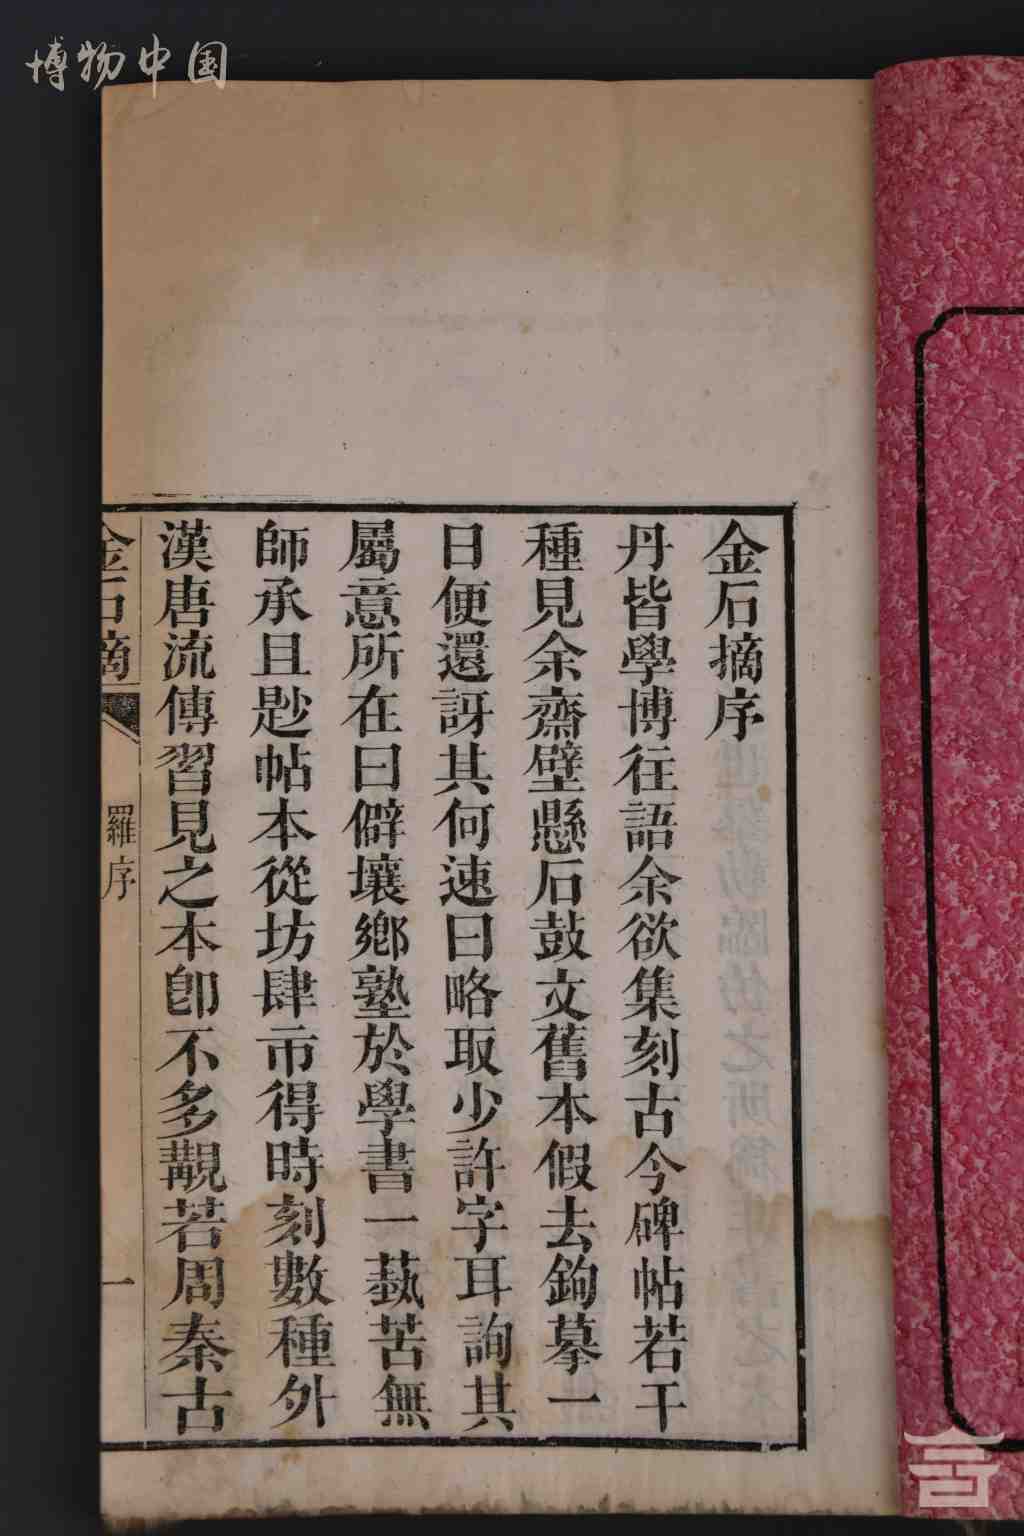 博物中国
金石摘序
丹皆學博往語余欲集刻古今碑帖若干
種見余齋壁懸石鼓文舊本假去鉤摹一
日便還訝其何速曰略取少許字耳詢其
屬意所在曰僻壤鄉塾於學書一藝苦無
師承且尟帖本從坊肆市得時刻數種外
漢唐流傳習見之本卽不多覯若周秦古
金石摘
羅序
一